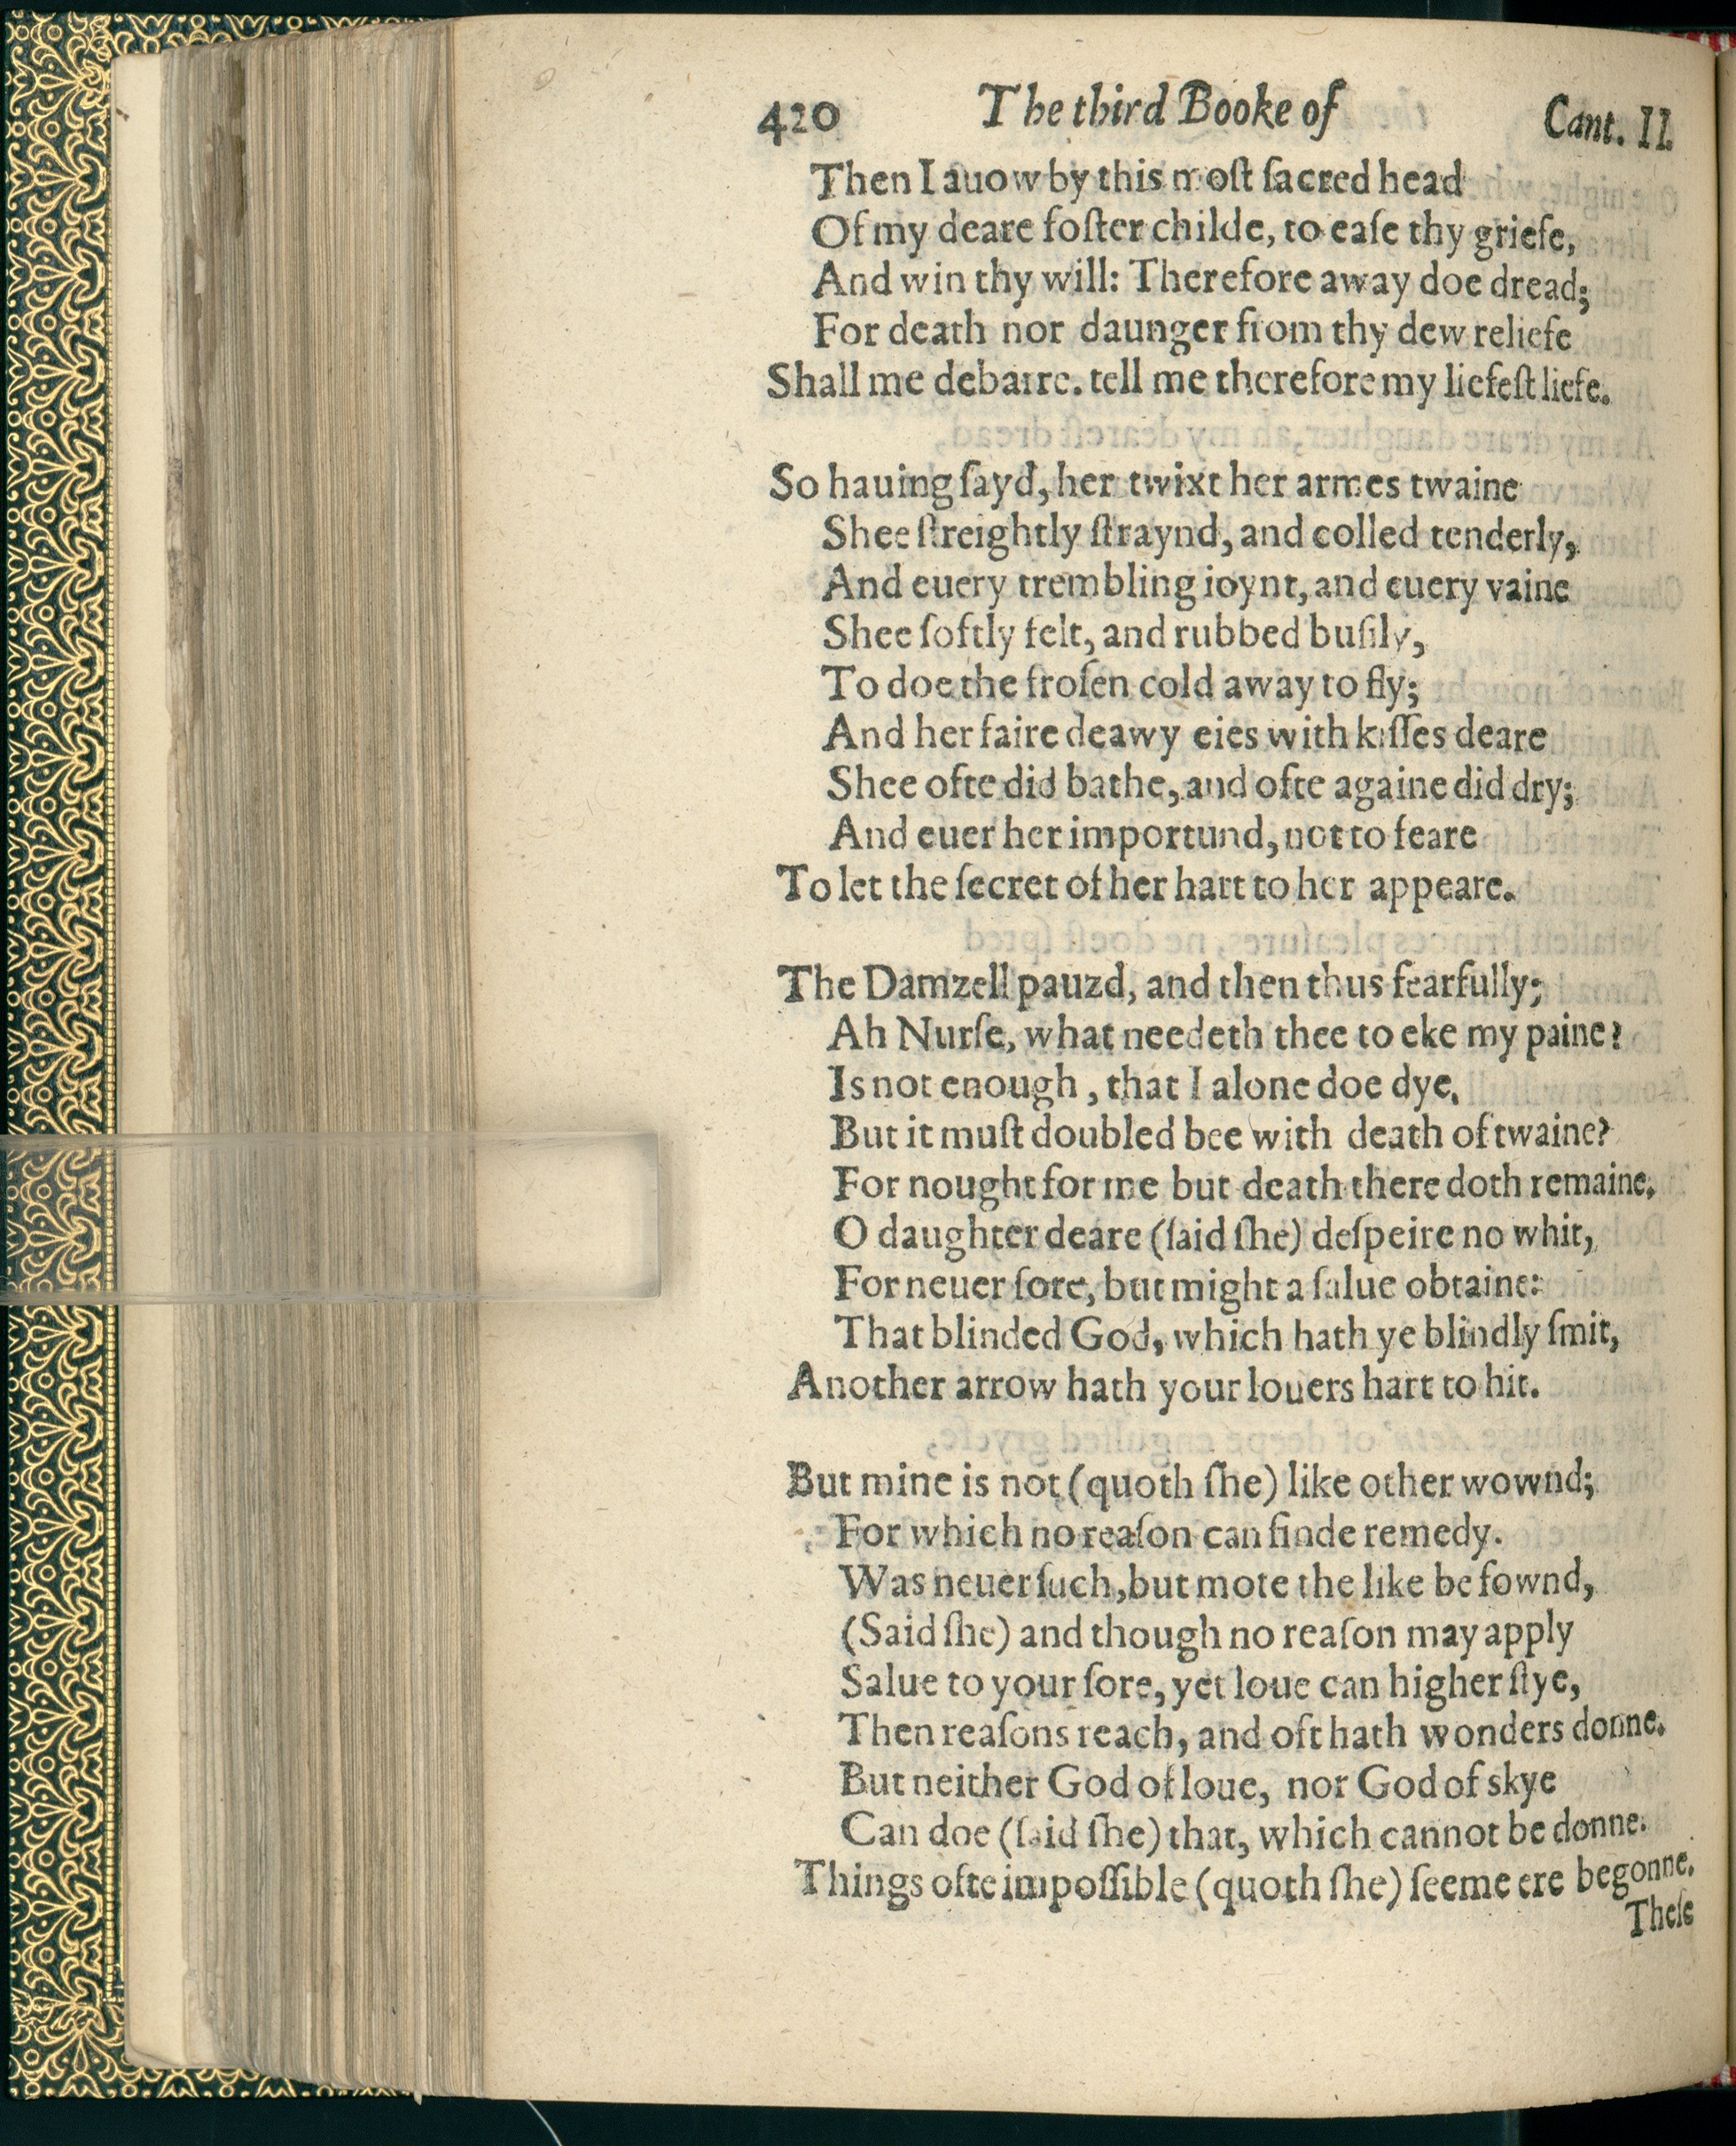 420 The third Booke of Cant. II.
Then I auow by this moſt ſacred head
Of my deare foſter childe, to eaſe thy griefe,
And win thy will: Therefore away doe dread;
For death nor daunger from thy dew reliefe
Shall me debarre. tell me therefore my liefeſt liefe.
So hauing ſayd, her twixt her armes twaine
Shee ſtreightly ſtraynd, and colled tenderly,
And euery trembling ioynt, and euery vaine
Shee ſoftly felt, and rubbed buſily,
To doe the froſen cold away to fly;
And her faire deawy eies with kiſſes deare
Shee ofte did bathe, and ofte againe did dry;
And euer her importund, not to feare
To let the ſecret of her hart to her appeare.
The Damzell pauzd, and then thus fearfully;
Ah Nurſe, what needeth thee to eke my paine?
Is not enough, that I alone doe dye,
But it muſt doubled bee with death of twaine?
For nought for me but death there doth remaine.
O daughter deare (ſaid ſhe) deſpeire no whit,
For neuer ſore, but might a ſalue obtaine:
That blinded God, which hath ye blindly ſmit,
Another arrow hath your louers hart to hit.
But mine is not (quoth ſhe) like other wownd;
For which no reaſon can finde remedy.
Was neuer ſuch, but mote the like be fownd,
(Said ſhe) and though no reaſon may apply
Salue to your ſore, yet loue can higher ſtye,
Then reaſons reach, and oft hath wonders donne.
But neither God of loue, nor God of skye
Can doe (ſaid ſhe) that, which cannot be donne.
Things ofte impoſſible (quoth ſhe) ſeeme ere begonne.
Theſe